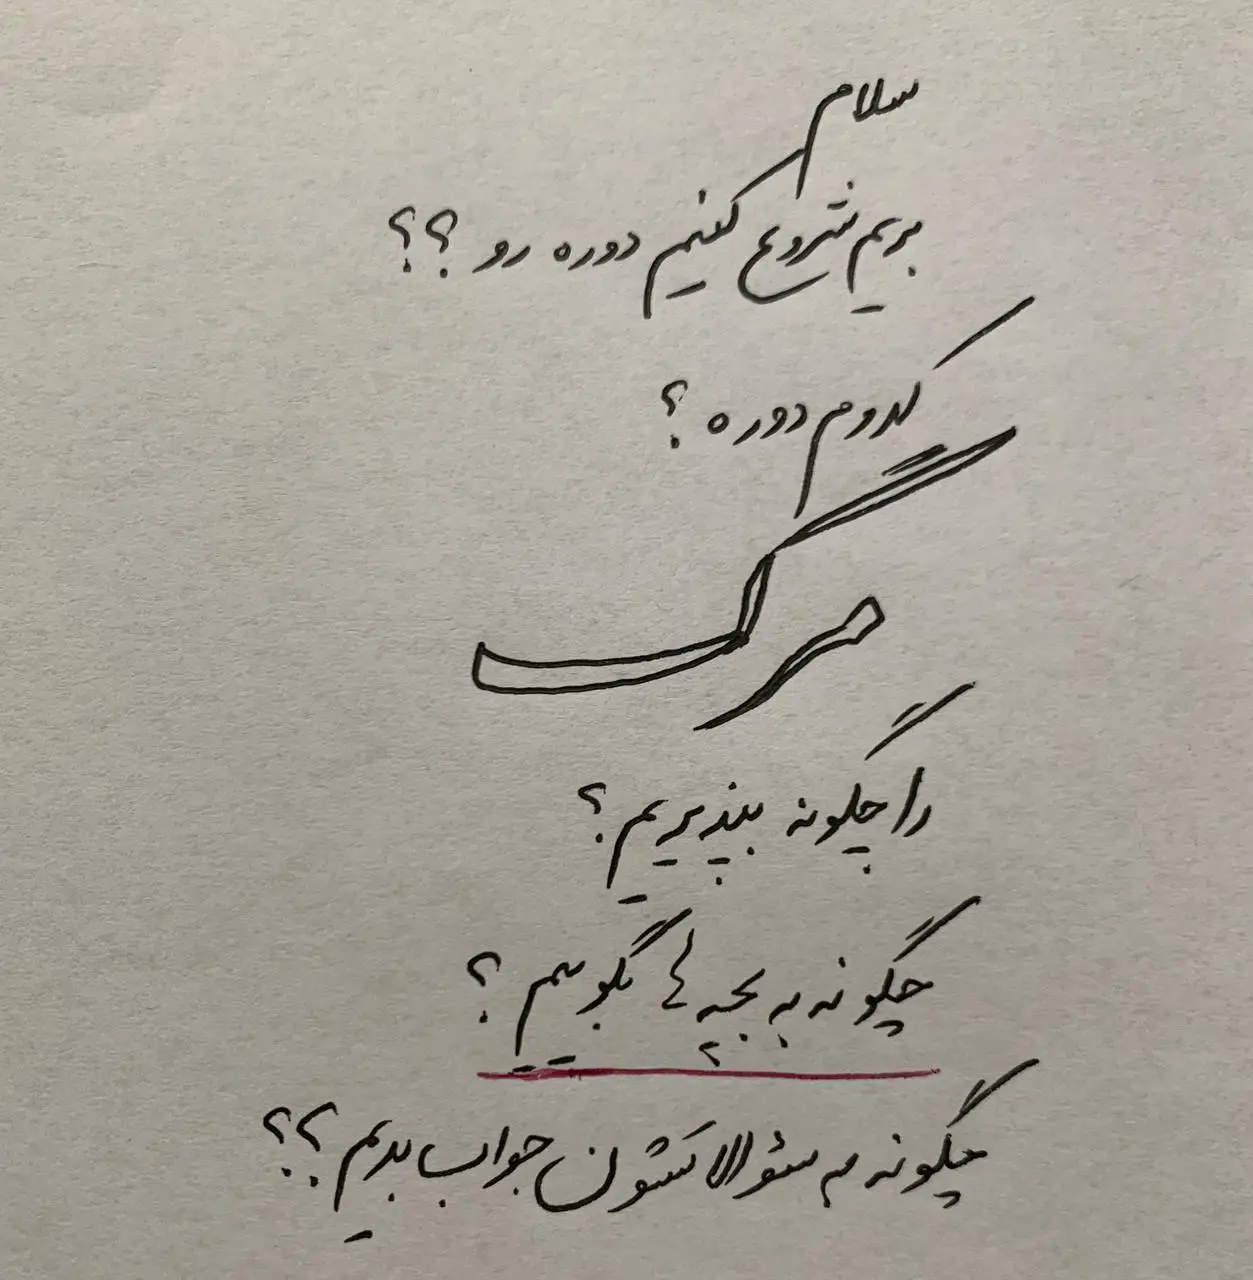 سلام
بریم شروع کنیم دوره رو ؟؟
کدوم دوره ؟
مرگ
را چگونه بپذیریم ؟
چگونه به بچه ها بگوییم ؟
چگونه به سئوالاتشون جواب بدیم ؟؟